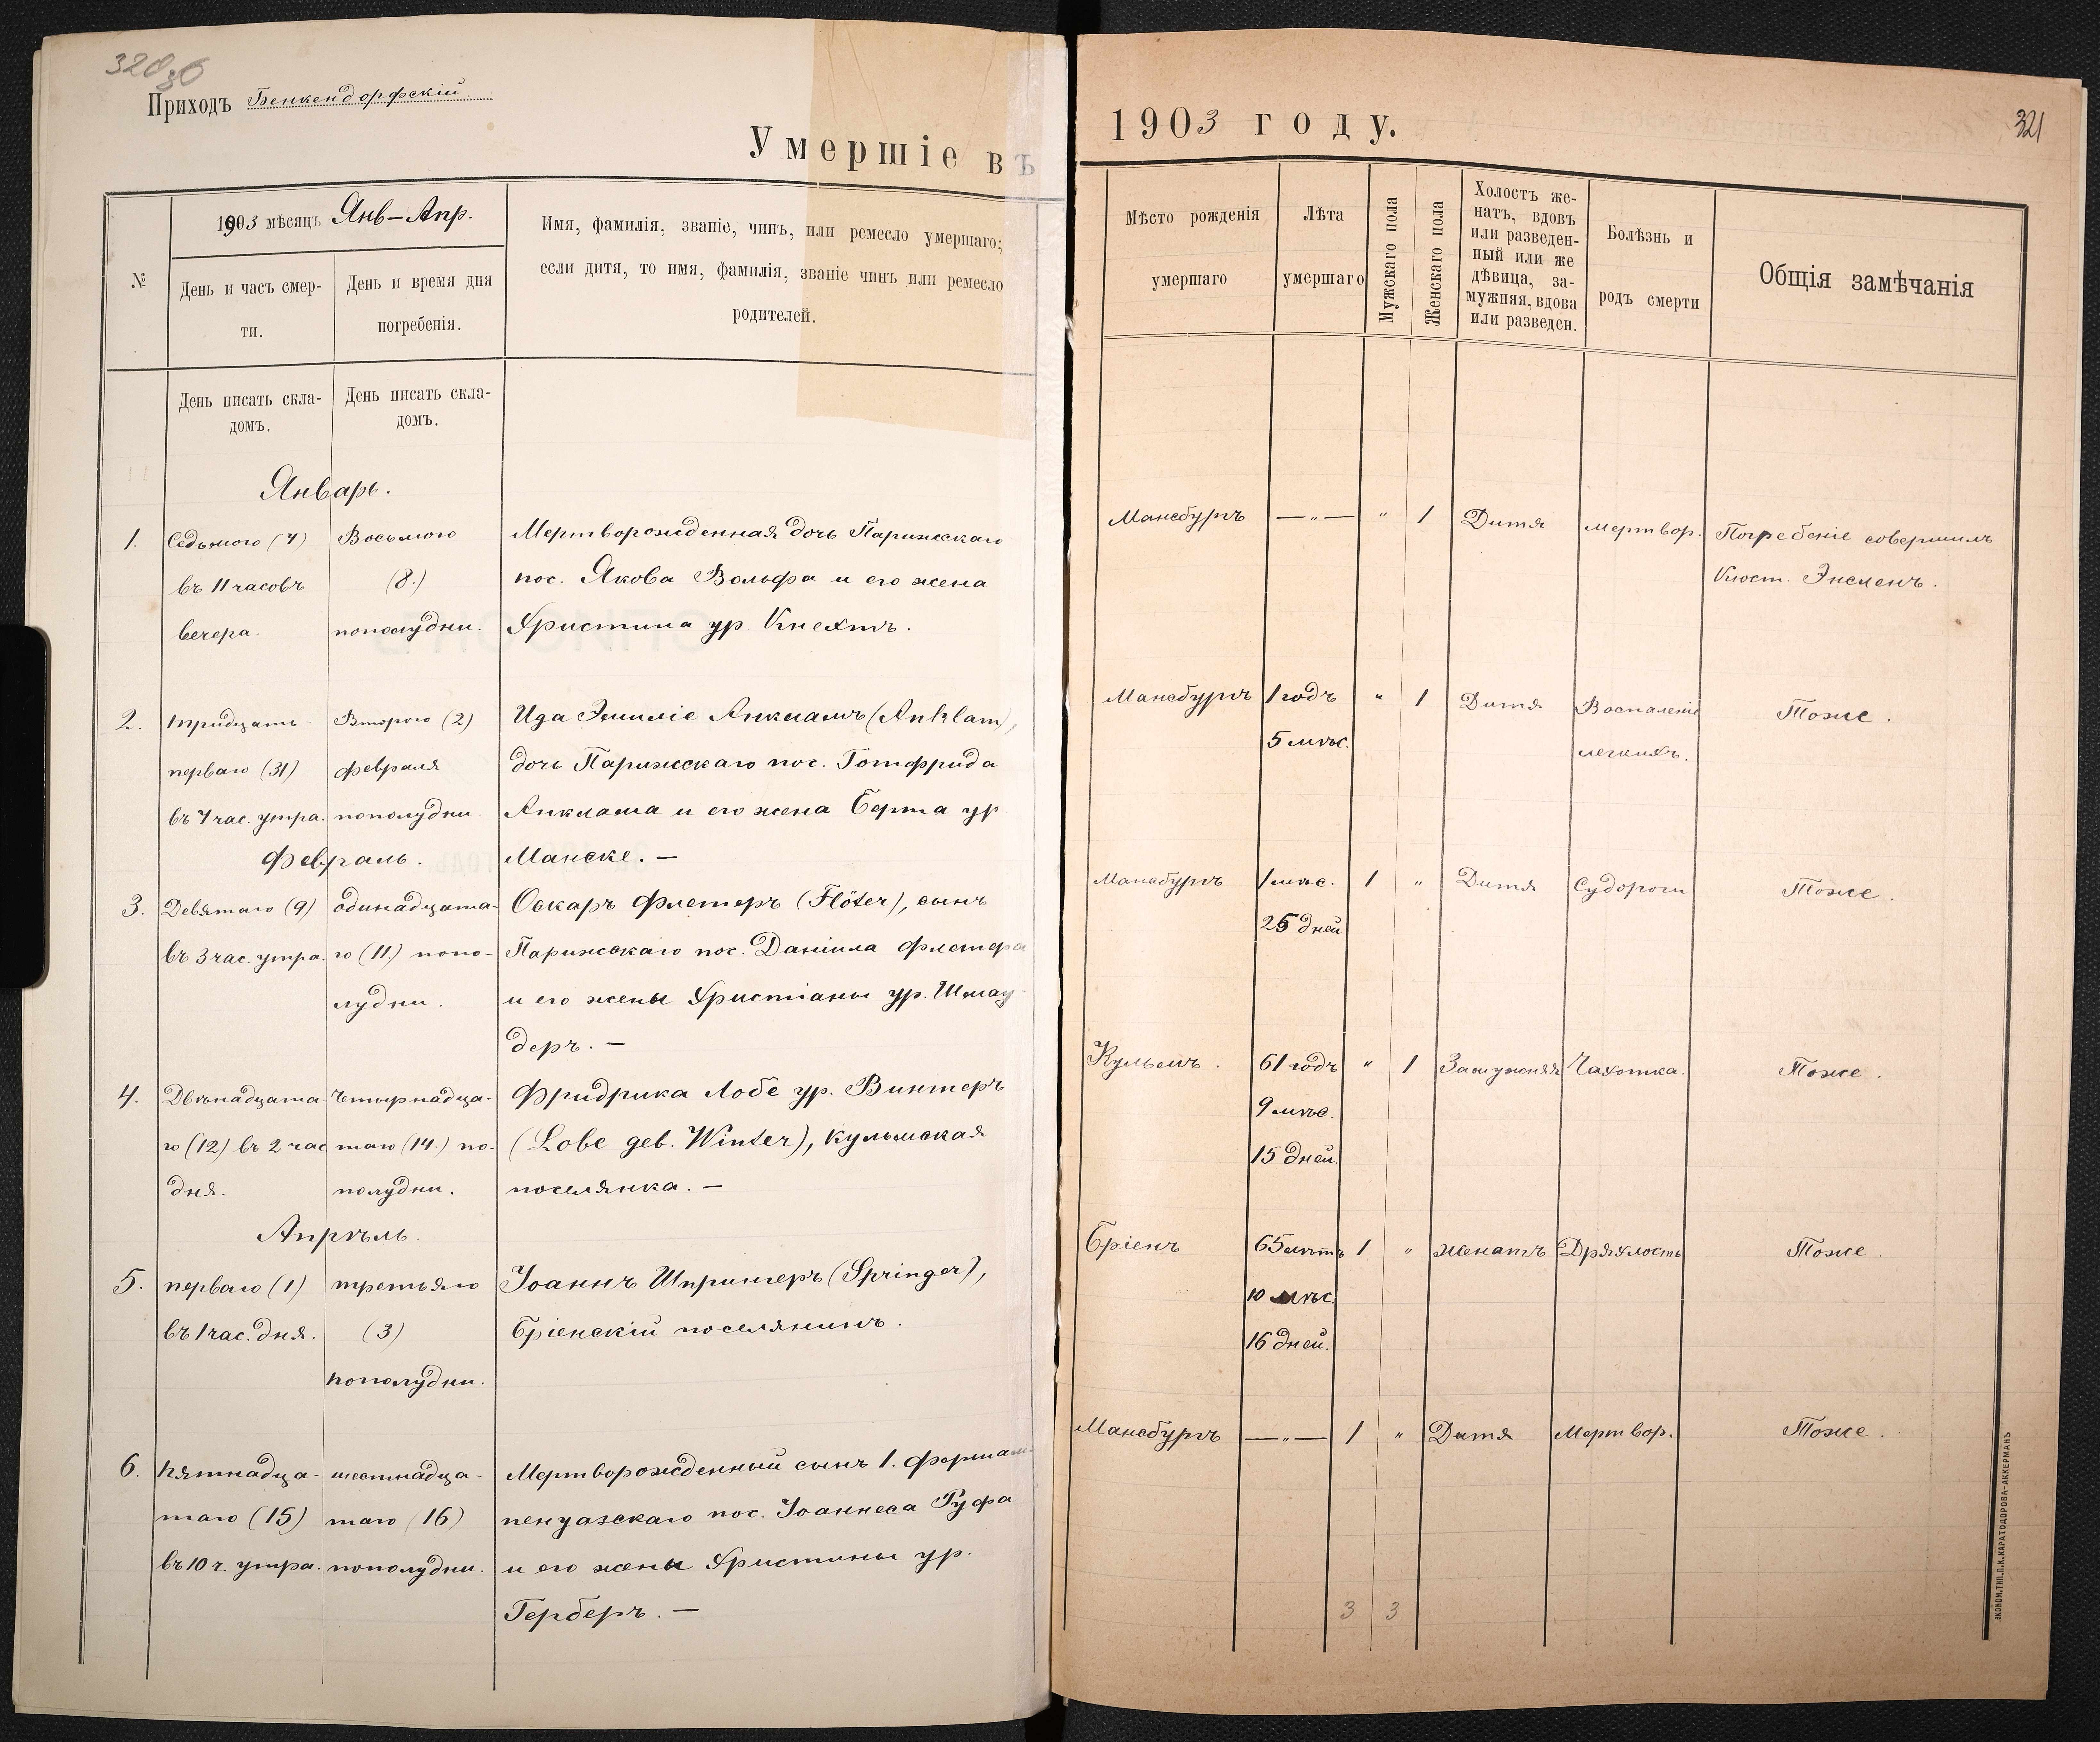 320
Приходъ Бенкендорфскій.
Умершіе въ
№
1903 мѣсяцъ Янв–Апр.
День и часъ смер-
ти.
День и время дня
погребенія.
Имя, фамилія, званіе, чинъ, или ремесло умершаго;
если дитя, то имя, фамилія, званіе чинъ или ремесло
родителей.
День писать скла-
домъ.
День писать скла-
домъ.
Январь.
1. Седьмого (7) Восьмого Мертворожденная дочь Парижскаго
въ 11 часовъ (8.) пос. Якова Вольфа и его жена
вечера. пополудни. Христина ур. Кнехтъ.
2. тридцать- Второго (2) Ида Эмиліе Анкламъ (Anklam),
перваго (31) февраля дочь Парижскаго пос. Готфрида
въ 7 час. утра. пополудни. Анклама и его жена Берта ур
Февраль. Манске. —
3. Девятаго (9) одинадцата- Оскаръ Флетеръ (Flöter), сынъ
въ 3 час. утра. го (11.) попо- Парижскаго пос. Даніила Флетера
лудни. и его жены Христіаны ур. Шмау-
деръ. —
4. Двѣнадцата- Четырнадца- Фридрика Лобе ур. Винтеръ
го (12) въ 2 час таго (14.) по- (Lobe geb. Winter), Кульмская
дня. полудни. поселянка. —
Апрѣль.
5. перваго (1) третьяго Іоаннъ Шпрингеръ (Springer),
въ 1 час. дня. (3) Бріенскій поселянинъ.
пополудни.
6. пятнадца- шестнадца- Мертворожденный сынъ 1. Фершам-
таго (15) таго (16) пенуазскаго пос. Іоаннеса Руфа
въ 10 ч. утра. пополудни. и его жены Христины ур.
Герберъ. —
1903 году.
321
Мѣсто рожденія
умершаго
Лѣта
умершаго
Мужскаго пола
Женскаго пола
Холостъ же-
натъ, вдовъ
или разведен-
ный или же
дѣвица, за-
мужняя, вдова
или разведен.
Болѣзнь и
родъ смерти
Общія замѣчанія
Мансбургъ — „ — „ 1 Дитя мертвор. Погребеніе совершилъ
Кюст. Энсленъ.
Мансбургъ 1 годъ „ 1 Дитя Воспаленіе Тоже.
5 мѣс. легкихъ.
Мансбургъ 1 мѣс. 1 „ Дитя Судороги Тоже.
25 дней
Кульмъ. 61 годъ „ 1 Замужняя Чахотка. Тоже.
9 мѣс.
15 дней.
Бріенъ 65 лѣтъ 1 „ женатъ Дряхлость Тоже.
10 мѣс.
16 дней.
Мансбургъ — „ — 1 „ Дитя Мертвор. Тоже.
3 3
ЭКОНОМ. ТИП. П. К. КАРАТОДОРОВА-АККЕРМАНЪ